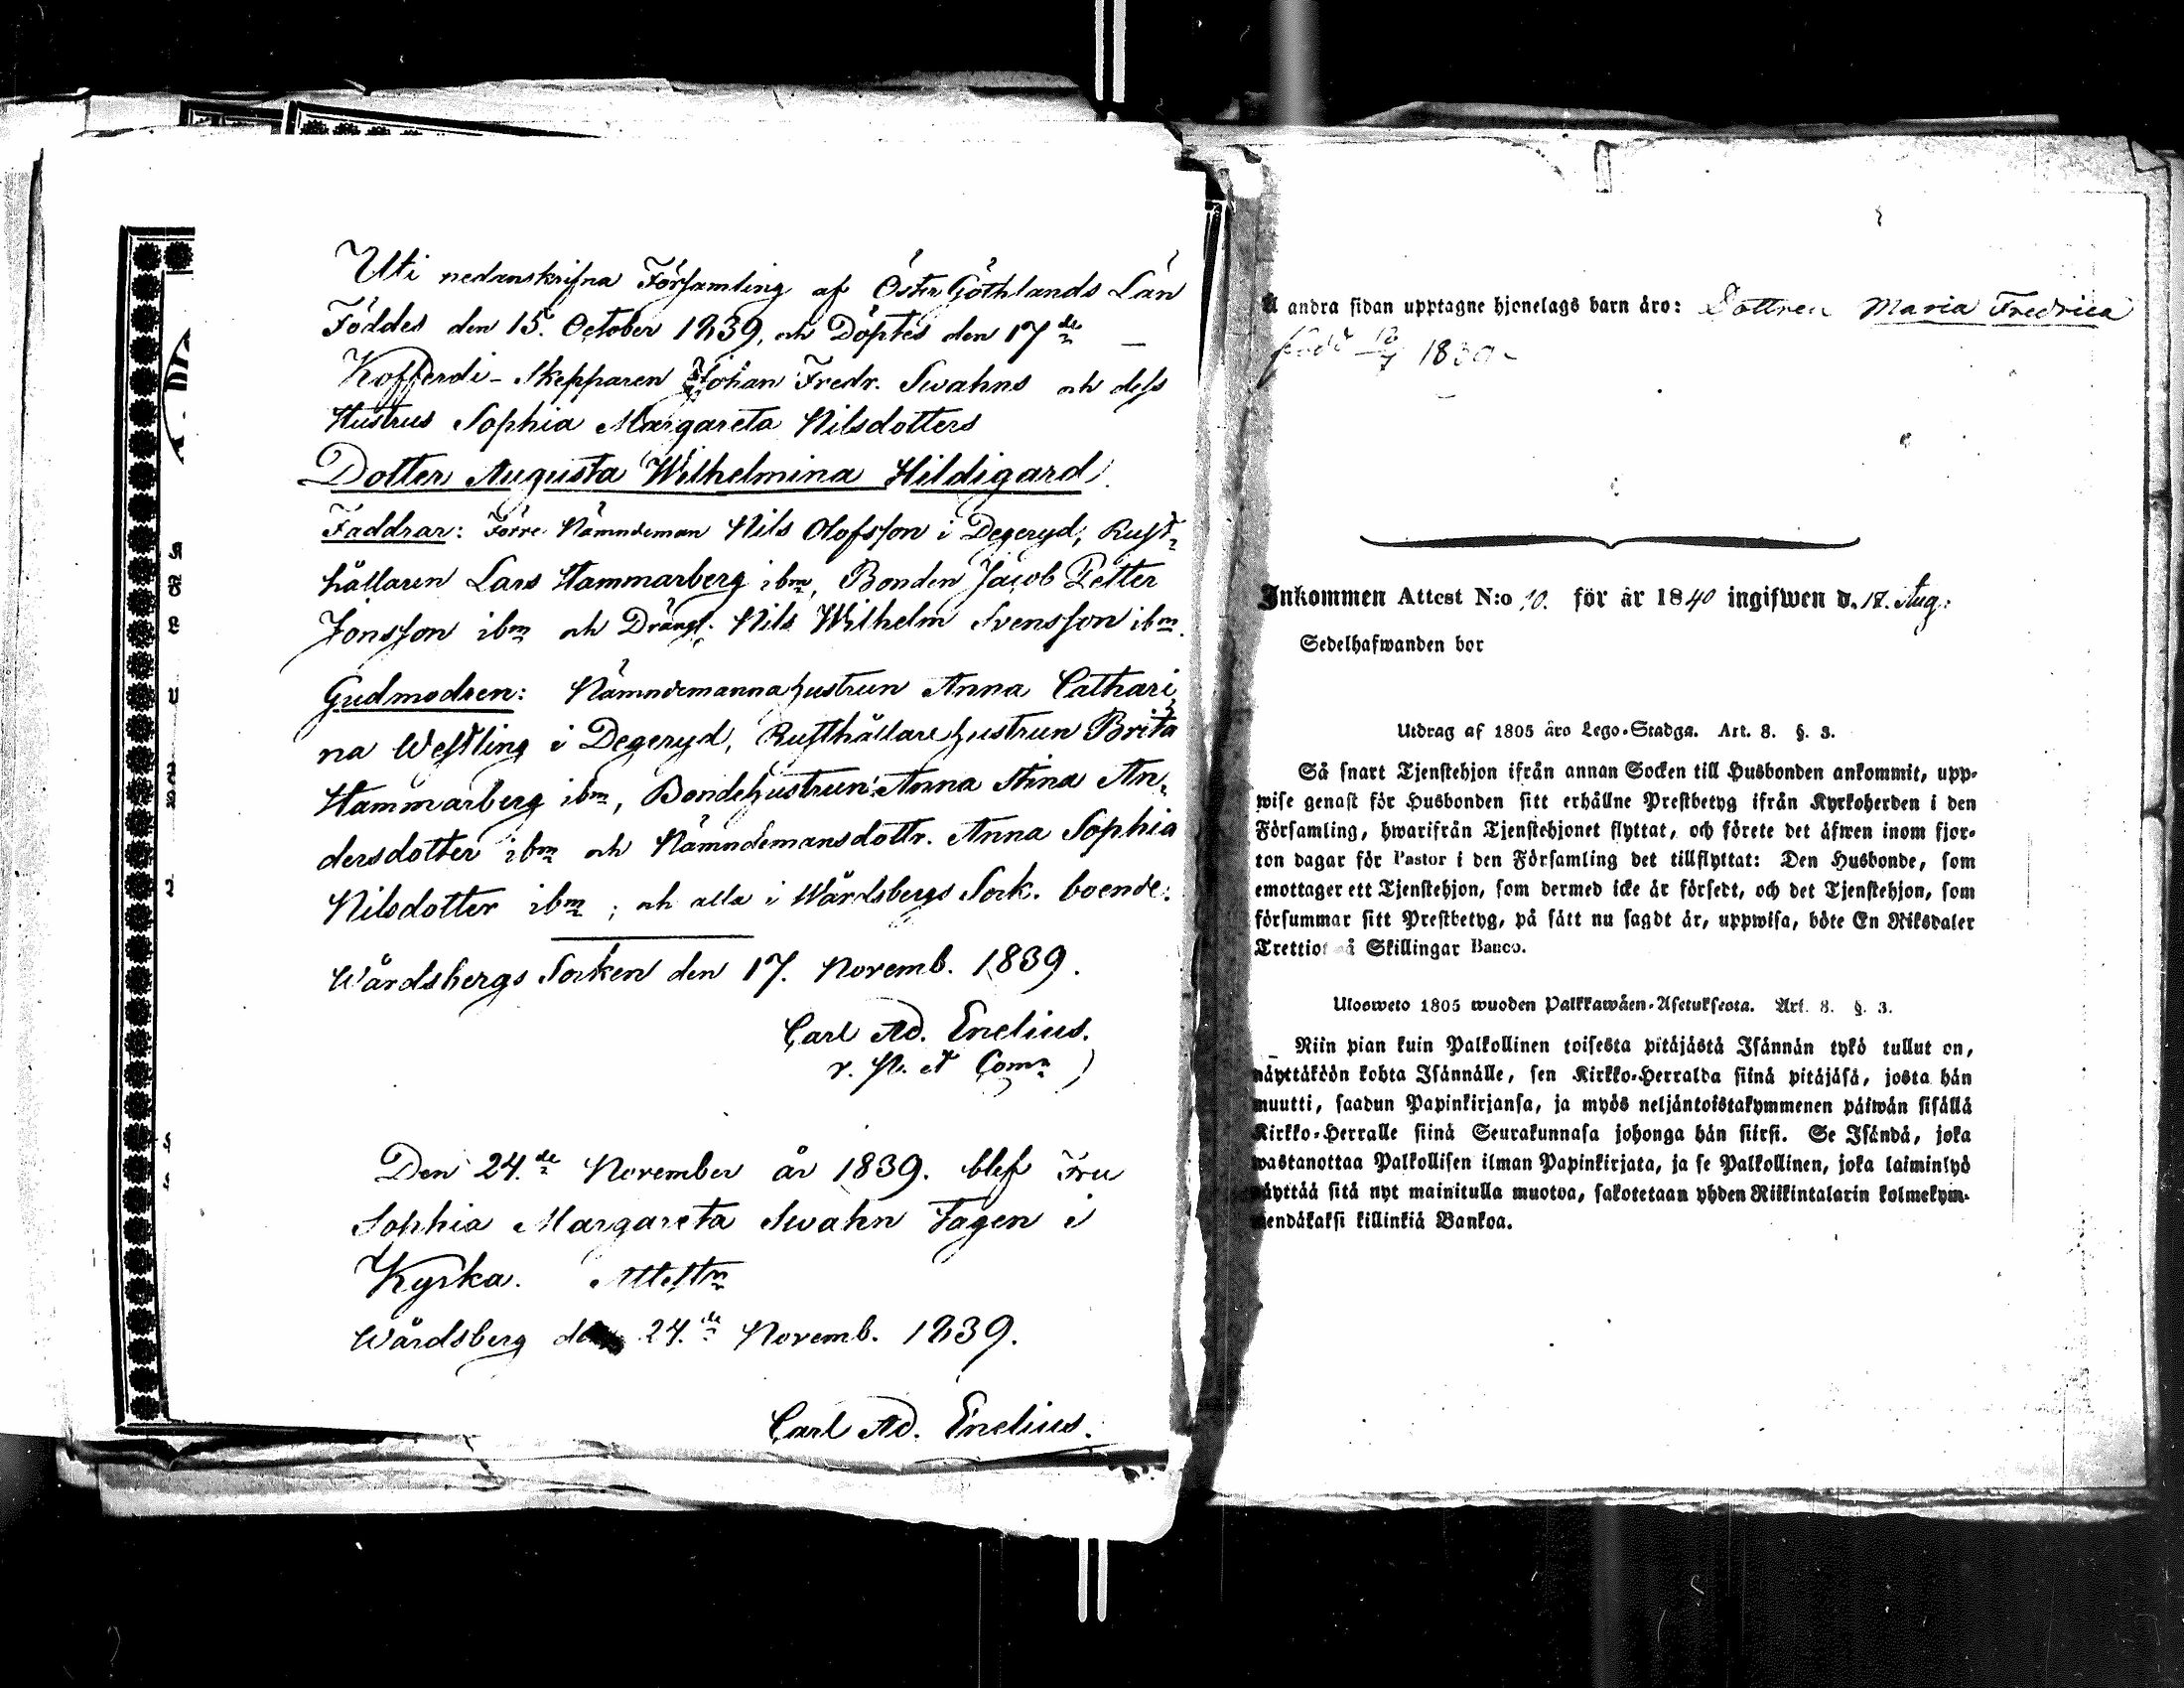 Uti nedanskrifna Församling af Öster Göthlands Län
Föddes den 15. October 1839, och Döptes den 17de
Kofferdi-Skepparen Johan Fredr. Swahns och dess
Hustrus Sophia Margareta Nilsdotters
Dotter Augusta Wilhelmina Hildigard.
Faddrar: Förre Nämndeman Nils Olofsson i Degeryd, Rust-
hållaren Lars Hammarberg ibm, Bonden Jacob Petter
Jonsson ibm och Drängs. Nils Wilhelm Svensson ibm.
Gudmodren: Nämndemannahustrun Anna Cathari
na Westling i Degeryd, Rusthållarehustrun Brita
Hammarberg ibm, Bondehustrun Anna Stina An-
dersdotter ibm och Nämndemansdottr. Anna Sophia
Nilsdotter ibm; och alla i Wårdsbergs Sock. boende.
Wårdsbergs Socken den 17. Novemb. 1839.
Carl Ad. Enelius.
v. P. Comr
Den 24de November år 1839. blef Fru
Sophia Margareta Swahn Tagen i
Kyrka. Attestr
Wårdsberg den 24de Novemb. 1839.
Carl Ad. Enelius.
å andra sidan upptagne hjonelags barn äro: Dottren Maria Fredrica
född 1839
Inkommen Attest N:o 10. för år 1840 ingifwen d. 17. Aug:
Sedelhafwanden bor
Utdrag af 1805 års Lego-Stadga. Art. 8. §. 3.
Så snart Tjenstehjon ifrån annan Socken till Husbonden ankommit, upp-
wise genast för Husbonden sitt erhållne Prestbetyg ifrån Kyrkoherden i den
Församling, hwarifrån Tjenstehjonet flyttat, och förete det äfwen inom fjor-
ton dagar för Pastor i den Församling det tillflyttat: Den Husbonde, som
emottager ett Tjenstehjon, som dermed icke är försedt, och det Tjenstehjon, som
försummar sitt Prestbetyg, på sätt nu sagdt är, uppwisa, böte En Riksdaler
Trettiotwå Skillingar Banco.
Ulosweto 1805 wuoden Palkkawäen-Asetuksesta. Art. 8. §. 3.
Niin pian kuin Palkollinen toisesta pitäjästä Isännän tykö tullut on,
näyttäköön kohta Isännälle, sen Kirkko-Herralda siinä pitäjäsä, josta hän
muutti, saadun Papinkirjansa, ja myös neljäntoistakymmenen päiwän sisällä
Kirkko-Herralle siinä Seurakunnasa johonga hän siirsi. Se Isändä, joka
wastanottaa Palkollisen ilman Papinkirjata, ja se Palkollinen, joka laiminlyö
näyttää sitä nyt mainitulla muotoa, sakotetaan yhden Riikintalarin kolmekym-
mendäkaksi killinkiä Bankoa.